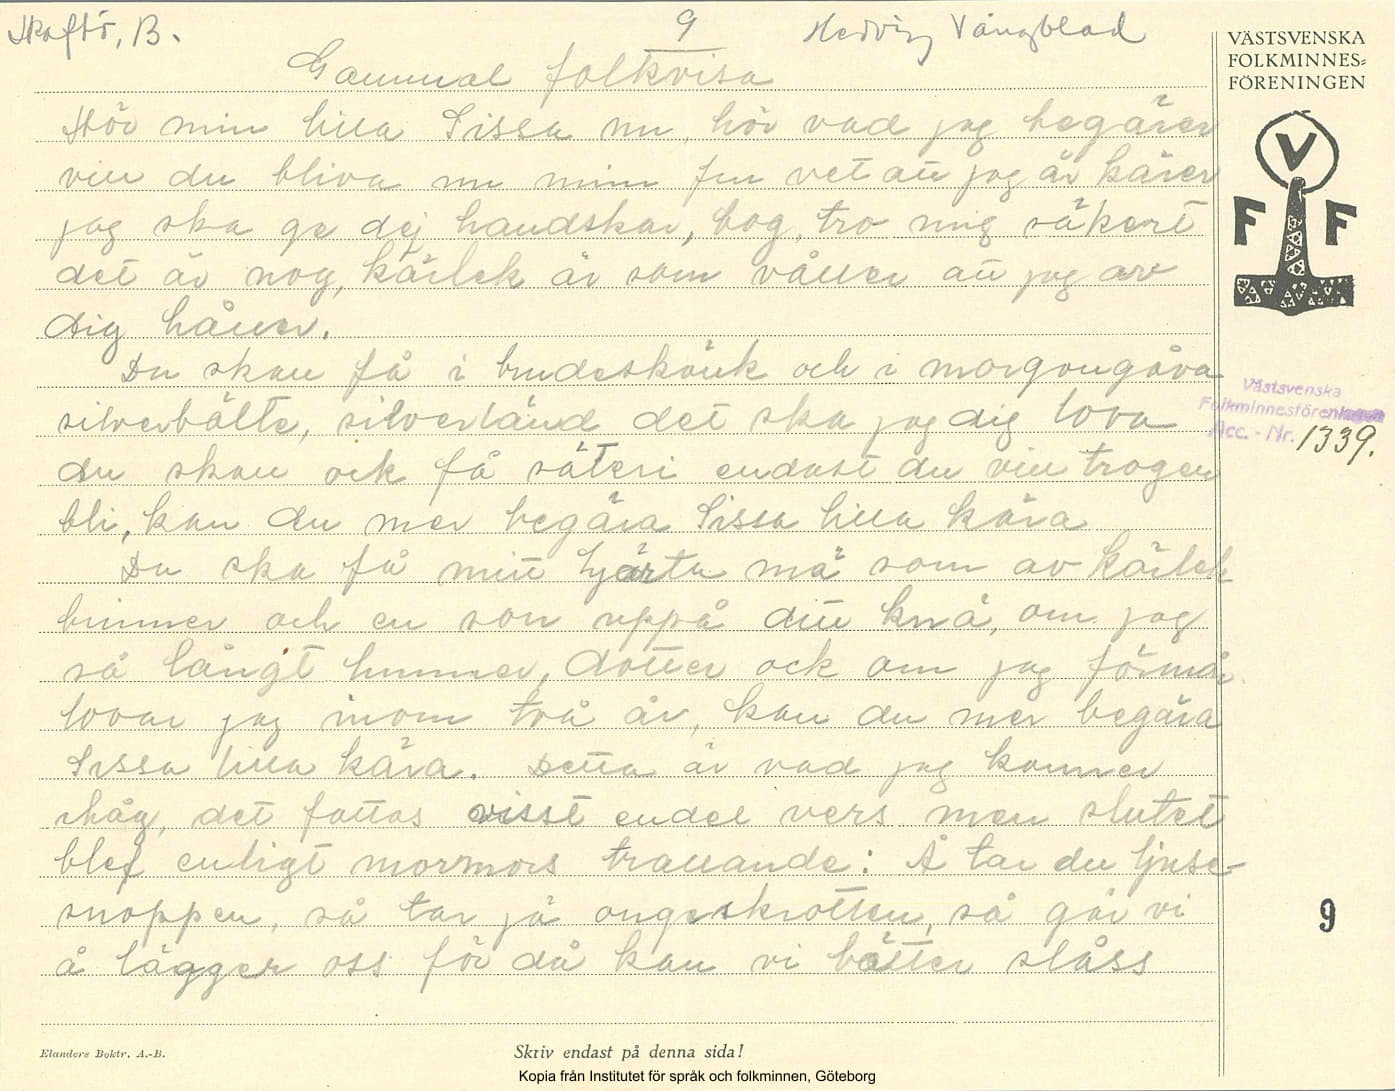 Skaftö, B.
9
Hedvig Vångblad
VÄSTSVENSKA
FOLKMINNES-
FÖRENINGEN
Gammal folkvisa
Hör min lilla Sissa nu, hör vad jag begärer
vill du bliva nu min fru vet att jag är kärer
jag ska ge dej handskar, bog, tro mig säkert
det är nog, kärlek är som våller att jag av
dig håller.
Du skall få i brudeskänk och i morgongåva
silverbälte, silverländ det ska jag dig lova
du skall ock få säteri endast du vill trogen
bli, kan du mer begära Sissa lilla kära
Du ska få mitt hjärta må som av kärlek
brinner och en son uppå ditt knä, om jag
så långt hinner, dotter ock om jag förmår
lovar jag inom två år, kan du mer begära
Sissa lilla kära. Detta är vad jag kommer
ihåg, det fattas visst endel vers men slutet
blef enligt mormors trallande: Å tar du ljuse-
snoppen, så tar jä ongeskrotten, så går vi
å lägger oss för då kan vi bätter slåss
V
F F
Västsvenska
Folkminnesföreningen
Acc. - Nr. 1339.
9
Elanders Boktr. A.-B.
Skriv endast på denna sida!
Kopia från Institutet för språk och folkminnen, Göteborg